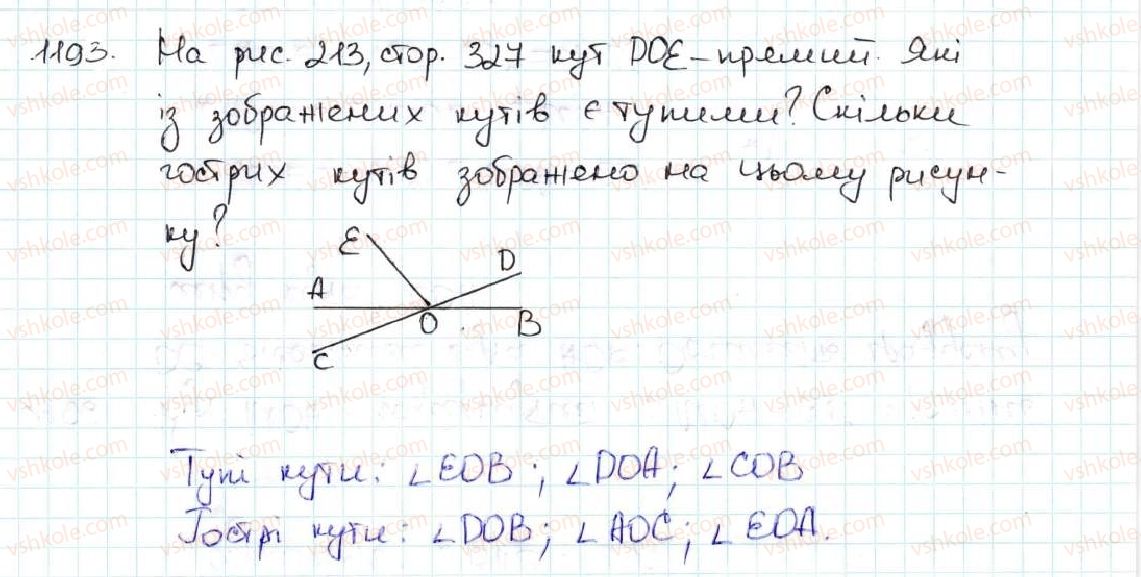 1193. На рис. 213, стор. 327 кут DOE - прямий. Які
із зображених кутів є тупими? Скільки
гострих кутів зображено на цьому рисун-
ку?
E
D
A
O
B
C
Тупі кути: ∠EOB; ∠DOA; ∠COB
Гострі кути: ∠DOB; ∠AOC; ∠EOA.
vshkole.com